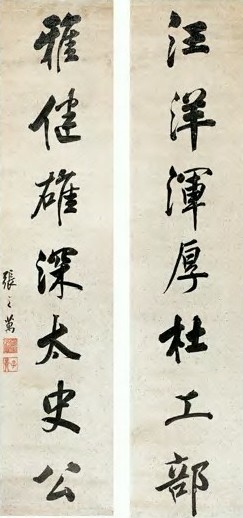 汪洋渾厚杜工部
雅健雄深太史公
張之萬